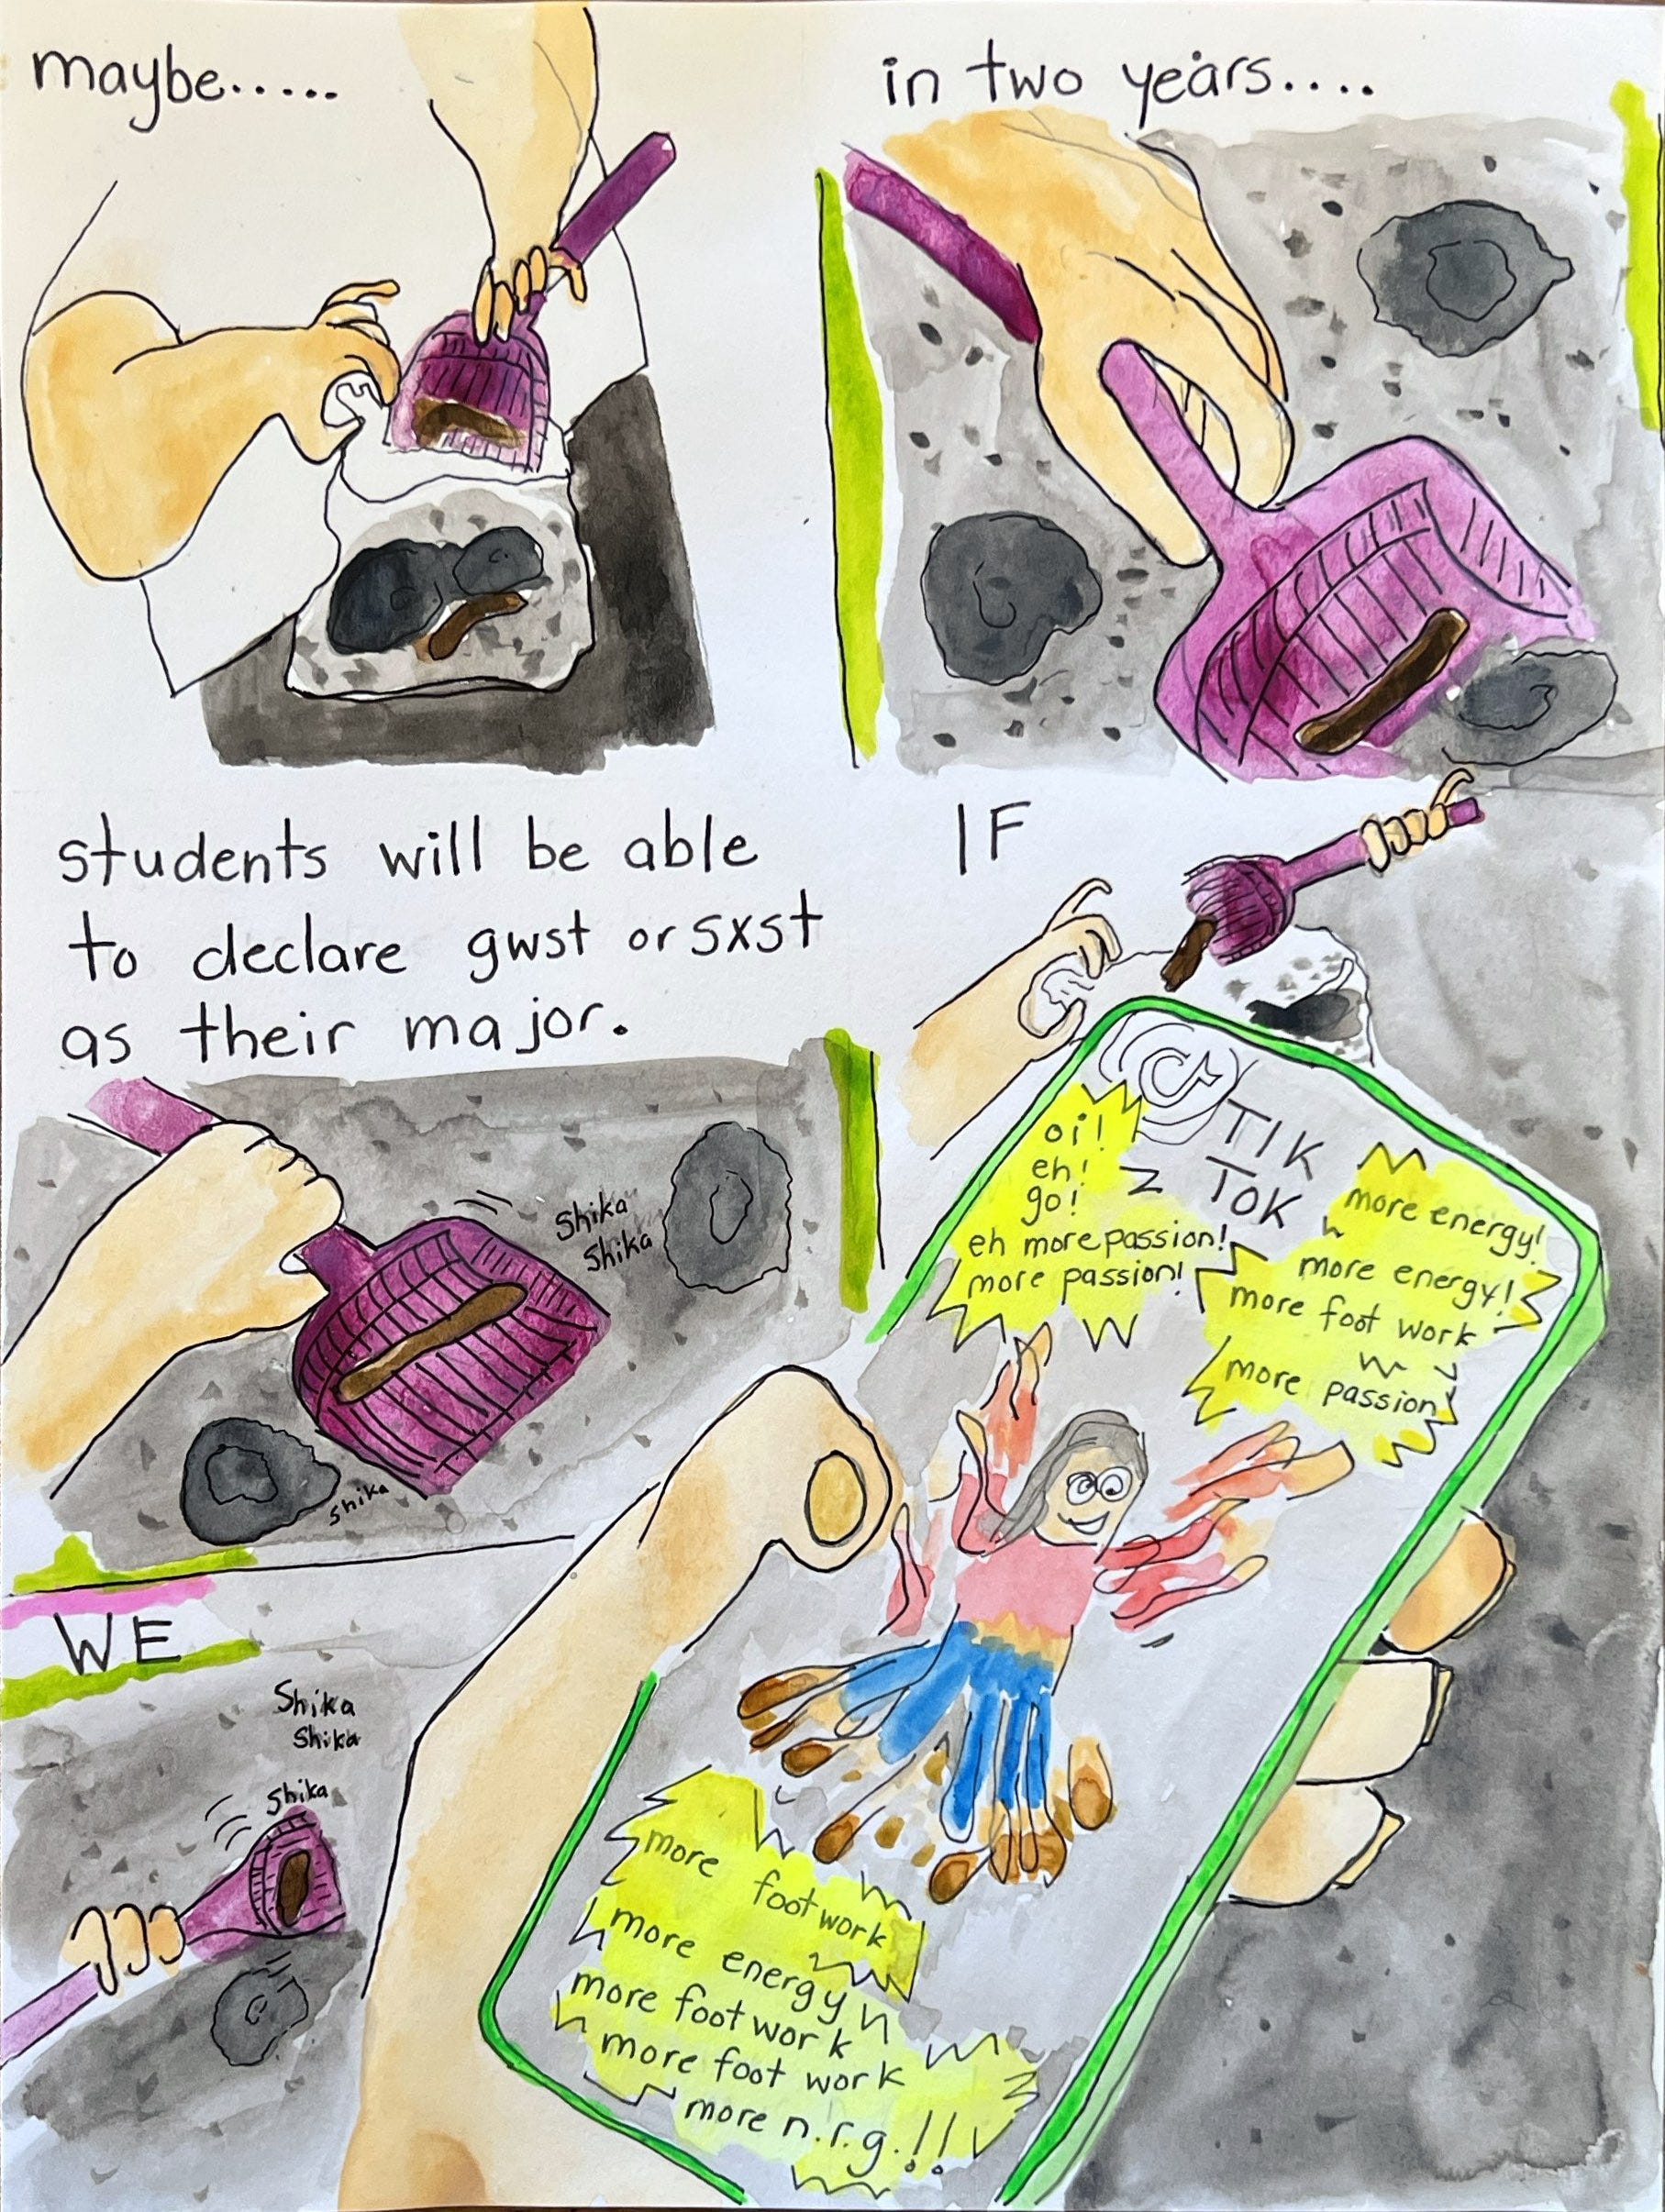 maybe.....
in two years....
students will be able
to declare gwst or sxst
as their major.
IF
Shika
Shika
shika
WE
Shika
Shika
Shika
TIK
TOK
oi!
eh!
go!
eh more passion!
more passion!
more energy!
more energy!
more foot work
more passion
more foot work
more energy
more foot work
more foot work
more n.r.g.!!